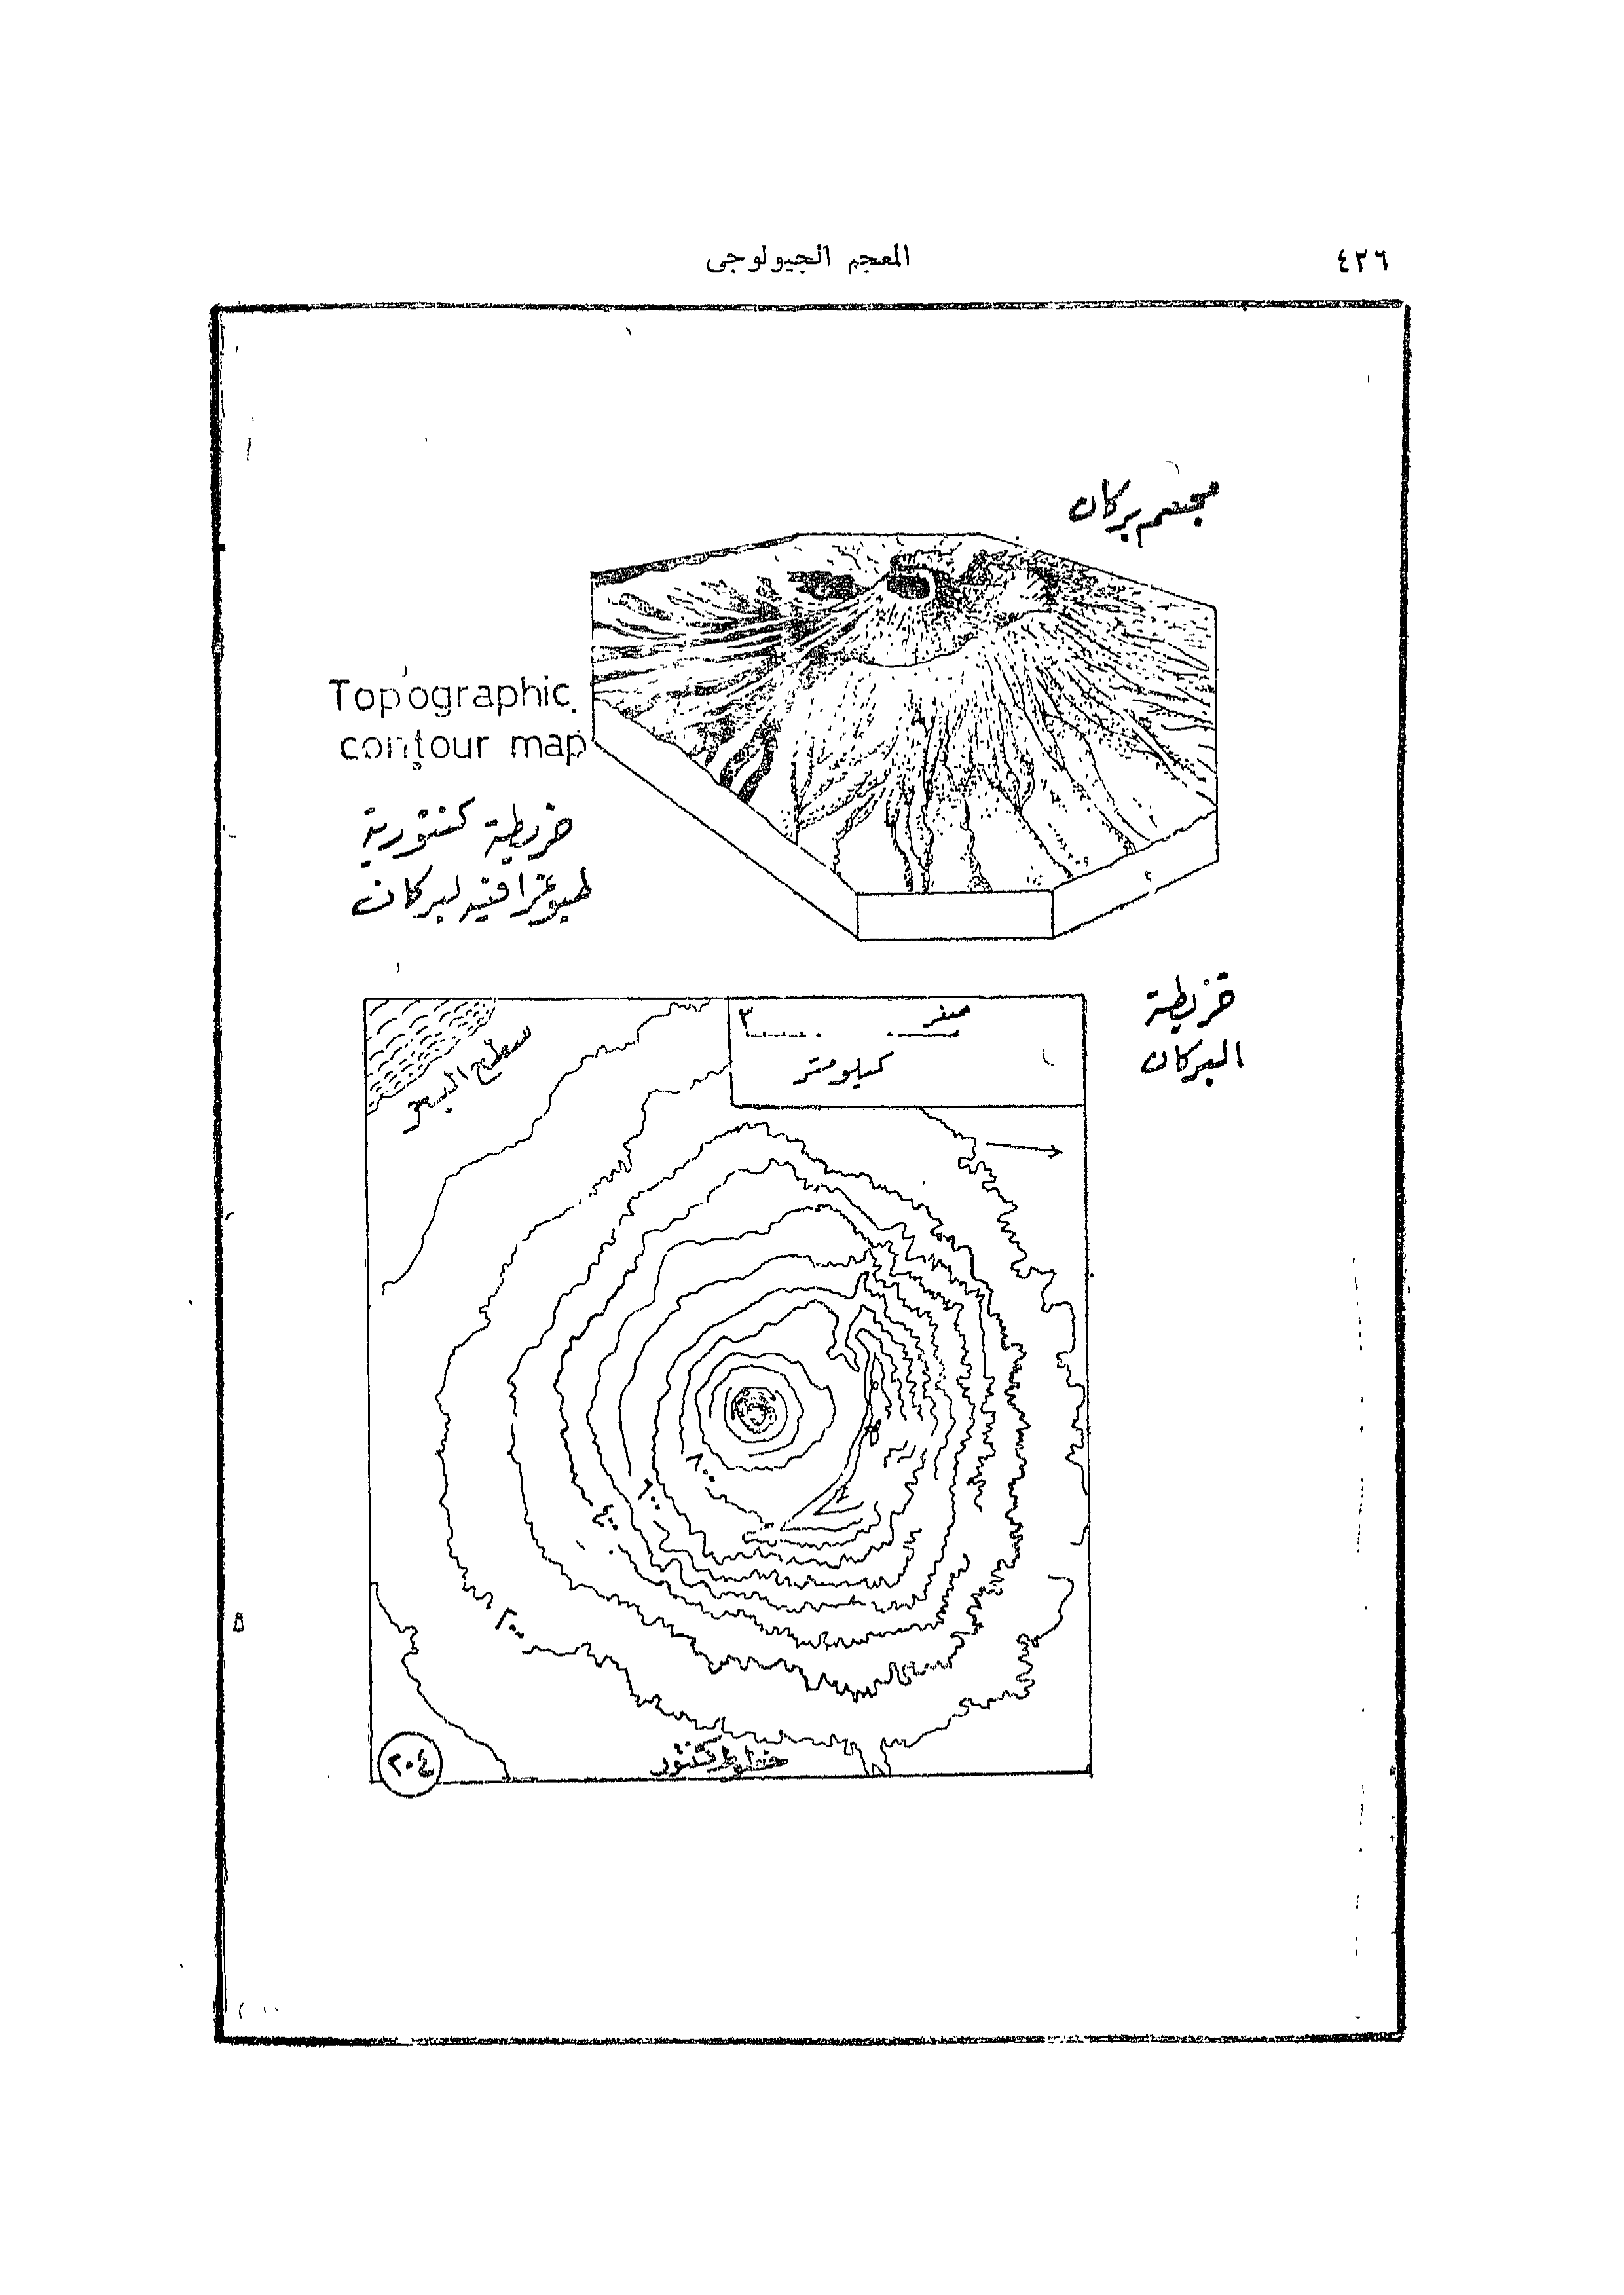 ٤٢٦
المعجم الجيولوجى
مجسم بركان
Topographic
contour map
خريطة كنتورية
طبوغرافية لبركان
خريطة
البركان
صفر
٣
كيلومتر
سطح البحر
٨٠٠
٦٠٠
٤٠٠
٢٠٠
خطوط كنتور
٢٠٤